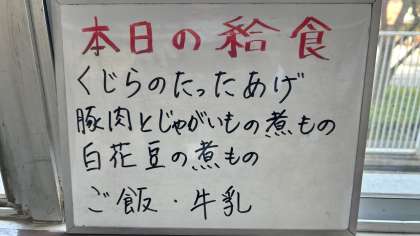 本日の給食
くじらのたったあげ
豚肉とじゃがいもの煮もの
白花豆の煮もの
ご飯・牛乳